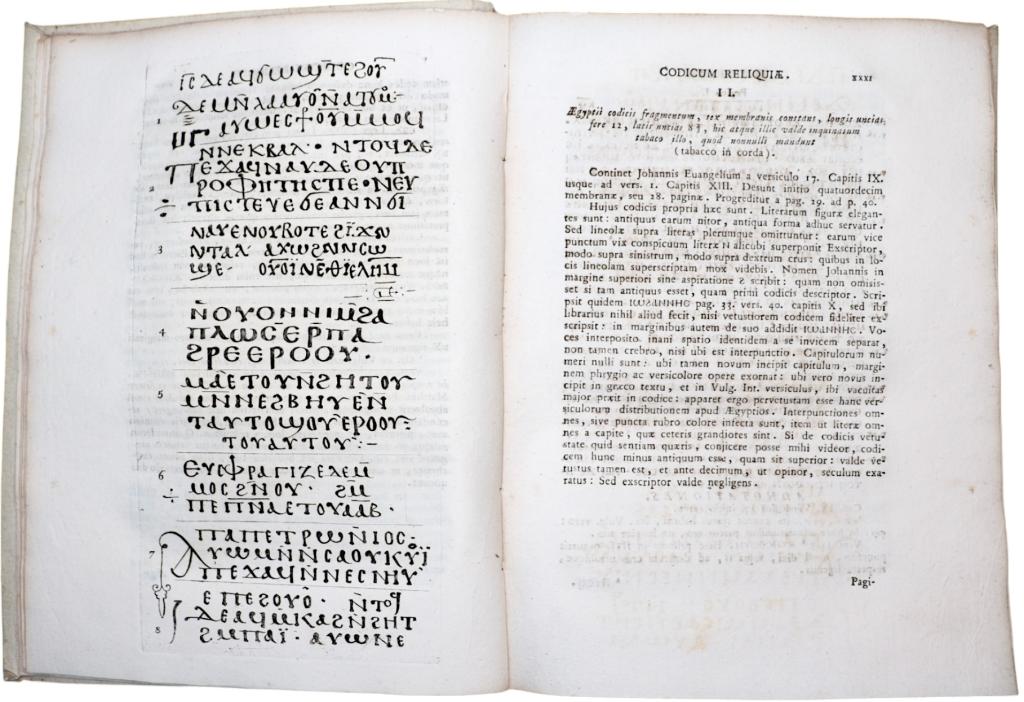 ⲛⲛⲉⲕⲃⲁⲗ · ⲛⲧⲟϥⲇⲉ
ⲡⲉϫⲁϥⲛⲁⲩϫⲉⲟⲩⲡ
ⲣⲟⲫⲏⲧⲏⲥⲡⲉ · ⲛⲉⲩ
ⲡⲓⲥⲧⲉⲩⲉϭⲉⲁⲛⲛϭⲓ
3
ⲛ̄ⲟⲩⲟⲛⲛⲓⲙϩⲁ
4 ⲡⲗⲱⲥⲉⲣⲡⲁ
ϩⲣⲉⲉⲣⲟⲟⲩ ·
ⲙⲁⲉⲧⲟⲩⲛϩⲏⲧⲟⲩ
5 ⲙⲛⲛⲉϩⲃⲏⲩⲉⲛ̄
ⲧⲁⲩⲧⲟϣⲟⲩⲉⲣⲟⲟⲩ:
ⲧⲟⲩⲁⲩⲧⲟⲩ :–
6 ⲉⲩⲥⲫⲣⲁⲅⲓⲍⲉⲙⲙ
ⲙⲟⲥϩⲛⲟⲩ · ϩⲙ
ⲡⲉⲡⲛⲁⲉⲧⲟⲩⲁⲁⲃ ·
ⲁⲡⲁⲡⲉⲧⲣⲱⲛⲓⲟⲥ:
7 ⲁⲩⲱⲙⲛⲛⲥⲁⲟⲩⲕⲩⲓ̈
ⲡⲉϫⲁϥⲛⲛⲉⲥⲛⲏⲩ
ⲉⲡⲉϩⲟⲩⲟ · ⲛ̄ⲧⲟϥ
ⲇⲉⲁϥⲙⲕⲁϩⲛϩⲏⲧ
8 ϩⲙⲡⲁⲓ̈ · ⲁⲩⲱⲛⲉ
CODICUM RELIQUIÆ. XXXI
II.
Ægyptii codicis fragmentum, sex membranis constans, longis uncias
fere 12, latis uncias 8½, hic atque illic valde inquinatum
tabaco illo, quod nonnulli mandunt
(tabacco in corda).
Continet Johannis Euangelium a versiculo 17. Capitis IX.
usque ad vers. 1. Capitis XIII. Desunt initio quatuordecim
membranæ, seu 28. paginæ. Progreditur a pag. 29. ad p. 40.
Hujus codicis propria hæc sunt. Literarum figuræ elegan-
tes sunt: antiquus earum nitor, antiqua forma adhuc servatur.
Sed lineolæ supra literas plerumque omittuntur: earum vice
punctum vix conspicuum literæ N alicubi superponit Exscriptor,
modo supra sinistrum, modo supra dextrum crus: quibus in lo-
cis lineolam superscriptam mox videbis. Nomen Johannis in
margine superiori sine aspiratione ϩ scribit: quam non omisis-
set si tam antiquus esset, quam primi codicis descriptor. Scri-
psit quidem ⲓⲱϩⲁⲛⲛⲏⲥ pag. 33. vers. 40. capitis X, sed ibi
librarius nihil aliud fecit, nisi vetustiorem codicem fideliter ex-
scripsit: in marginibus autem de suo addidit ⲓⲱⲁⲛⲛⲏⲥ. Vo-
ces interposito inani spatio identidem a se invicem separat,
non tamen crebro, nisi ubi est interpunctio. Capitulorum nu-
meri nulli sunt: ubi tamen novum incipit capitulum, margi-
nem phrygio ac versicolore opere exornat: ubi vero novus in-
cipit in græco textu, et in Vulg. Int. versiculus, ibi vacuitas
major præit in codice: apparet ergo pervetustam esse hanc ver-
siculorum distributionem apud Ægyptios. Interpunctiones om-
nes, sive puncta rubro colore infecta sunt, item ut literæ om-
nes a capite, quæ ceteris grandiores sint. Si de codicis vetu-
state quid sentiam quæris, conjicere posse mihi videor, codi-
cem hunc minus antiquum esse, quam sit superior: valde ve-
tustus tamen est, et ante decimum, ut opinor, seculum exa-
ratus: Sed exscriptor valde negligens.
Pagi-